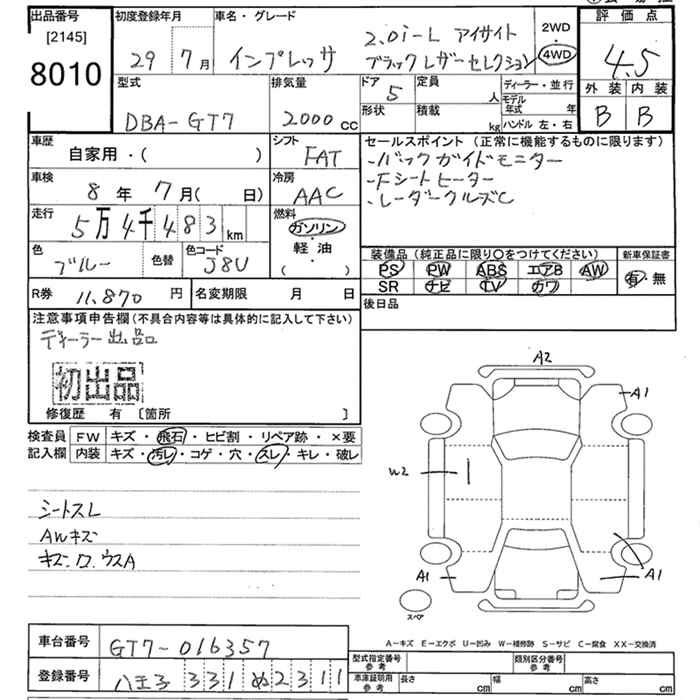 出品番号
[2145]
8010
初度登録年月
29 7月
車名・グレード
インプレッサ
2.0i-L アイサイト
ブラックレザーセレクション
2WD
・
4WD
評価点
4.5
外装 内装
B B
型式
DBA-GT7
排気量
2000cc
ドア 5
形状
定員 人
積載 kg
ディーラー・並行
モデル年式 年
ハンドル 左・右
車歴
自家用・( )
シフト
FAT
車検
8年7月( 日)
冷房
AAC
走行
5万4千483km
燃料
ガソリン
・
軽油
( ・ )
色
ブルー
色替
色コード
J8U
R券 11,870円
名変期限 月 日
セールスポイント(正常に機能するものに限ります)
・バックガイドモニター
・Fシートヒーター
・レーダークルズC
装備品(純正品に限り○をつけてください)
PS PW ABS エアB AW
SR ナビ TV カワ
新車保証書
有・無
後日品
注意事項申告欄(不具合内容等は具体的に記入して下さい)
ディーラー出品
初出品
修復歴 有 〔箇所 〕
検査員
記入欄
FW キズ・飛石・ヒビ割・リペア跡・×要
内装 キズ・汚レ・コゲ・穴・スレ・キレ・破レ
シートスレ
AWキズ
キズ.ワ.ウスA
A2
A1
W2
A1
A1
スペア
A-キズ E-エクボ U-凹み W-補修跡 S-サビ C-腐食 XX-交換済
車台番号 GT7-016357
登録番号 八王子 331 ぬ 2311
型式指定番号
参考
類別区分番号
参考
車庫証明用
参考
長さ cm 幅 cm 高さ cm